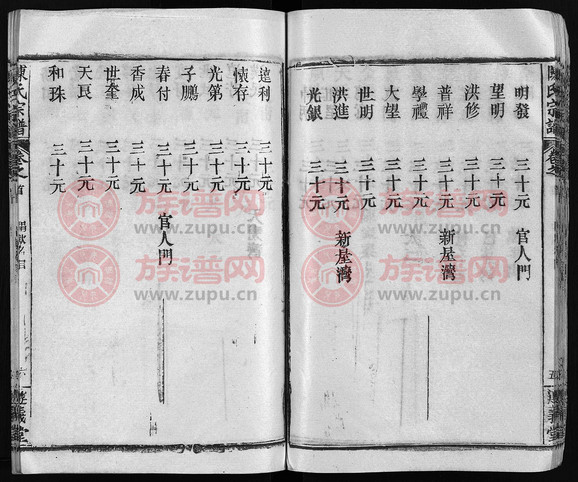 陳氏宗譜 卷之
五 遵義堂
明發 三十元 官人門
望明 三十元
洪修 三十元
普祥 三十元 新屋灣
學禮 三十元
大望 三十元
世明 三十元
洪進 三十元 新屋灣
光銀 三十元
達利 三十元
懷存 三十元
光第 三十元
子鵬 三十元
春付 三十元 官人門
香成 三十元
世奎 三十元
天良 三十元
和珠 三十元
陳氏宗譜 卷之首
六 遵義堂
族谱网
www.zupu.cn
族谱网
www.zupu.cn
族谱网
www.zupu.cn
族谱网
www.zupu.cn